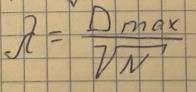 λ = Dmax / √N